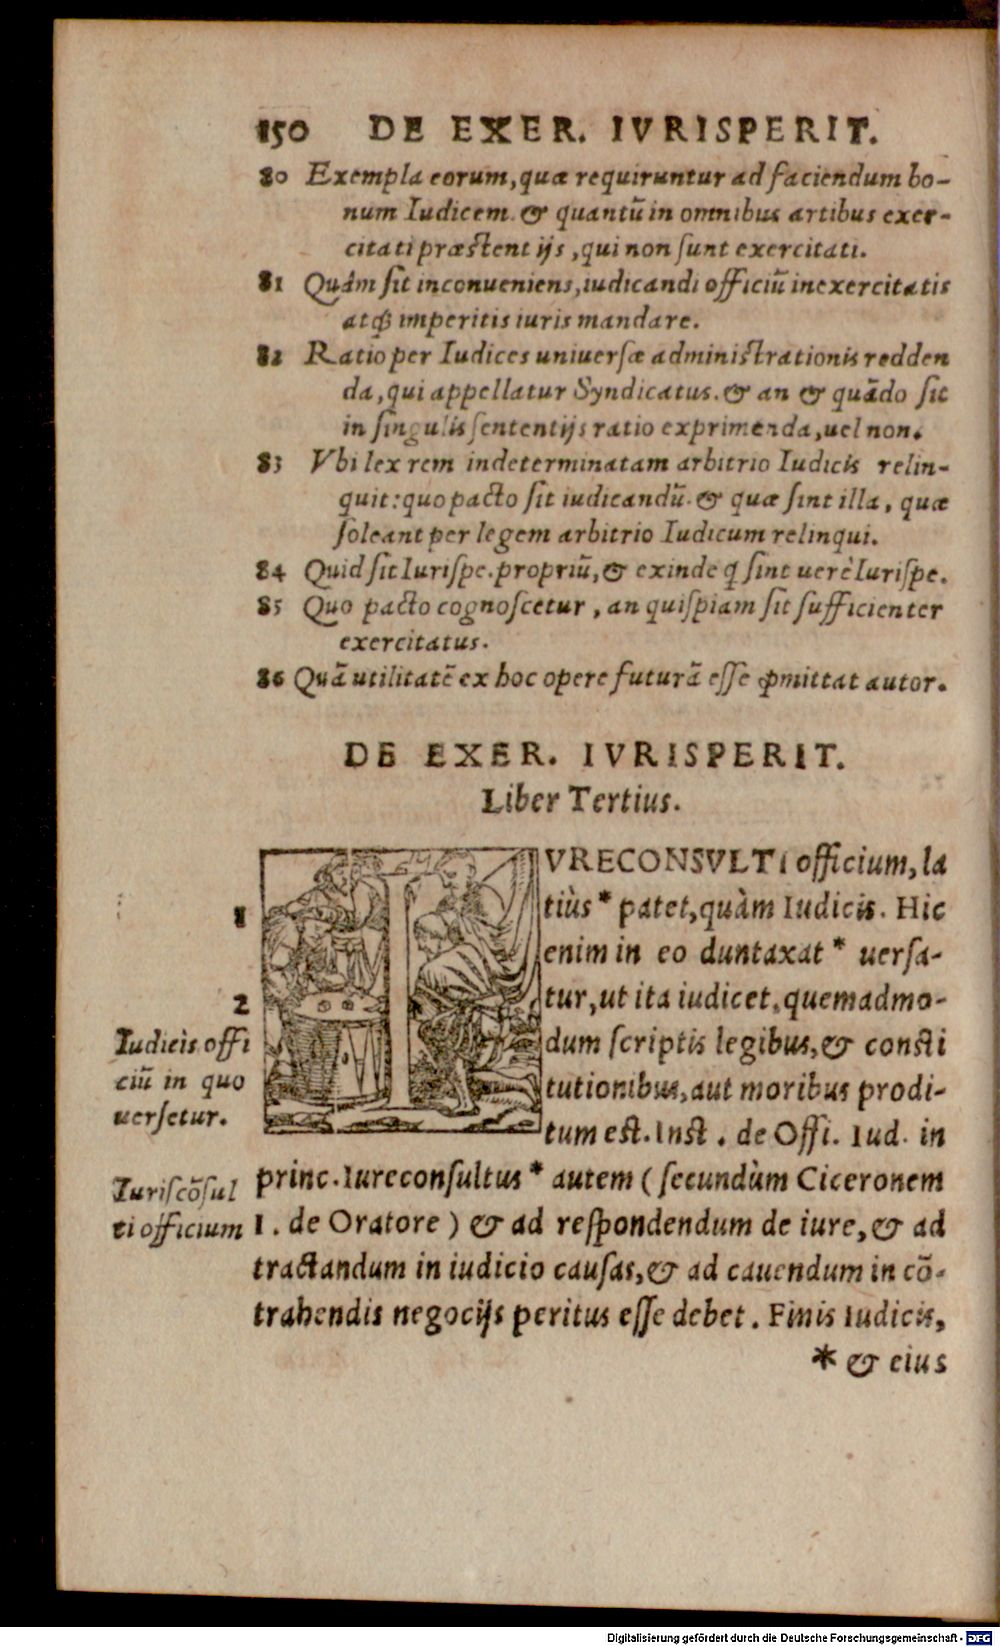 150 DE EXER. IVRISPERIT.
80 Exempla eorum, quæ requiruntur ad faciendum bo-
num Iudicem. & quantũ in omnibus artibus exer-
citati præstent ijs, qui non sunt exercitati.
81 Quàm sit inconueniens, iudicandi officiũ inexercitatis
atq́ꝫ imperitis iuris mandare.
82 Ratio per Iudices uniuersæ administrationis redden
da, qui appellatur Syndicatus. & an & quãdo sit
in singulis sententijs ratio exprimenda, uel non.
83 Vbi lex rem indeterminatam arbitrio Iudicis relin-
quit: quo pacto sit iudicandũ. & quæ sint illa, quæ
soleant per legem arbitrio Iudicum relinqui.
84 Quid sit Iurispe. propriũ, & exinde q̃ sint uerè Iurispe.
85 Quo pacto cognoscetur, an quispiam sit sufficienter
exercitatus.
86 Quã utilitatẽ ex hoc opere futurã esse ꝓmittat autor.
DE EXER. IVRISPERIT.
Liber Tertius.
VRECONSVLTI officium, la
1 tiùs * patet, quàm Iudicis. Hic
enim in eo duntaxat * uersa-
2 tur, ut ita iudicet, quemadmo-
Iudicis offi
ciũ in quo
uersetur.
dum scriptis legibus, & consti
tutionibus, aut moribus prodi-
tum est. Inst. de Offi. Iud. in
Iuriscõsul
ti officium
princ. Iureconsultus * autem (secundùm Ciceronem
I. de Oratore) & ad respondendum de iure, & ad
tractandum in iudicio causas, & ad cauendum in cõ-
trahendis negocijs peritus esse debet. Finis Iudicis,
* & eius
Digitalisierung gefördert durch die Deutsche Forschungsgemeinschaft - DFG